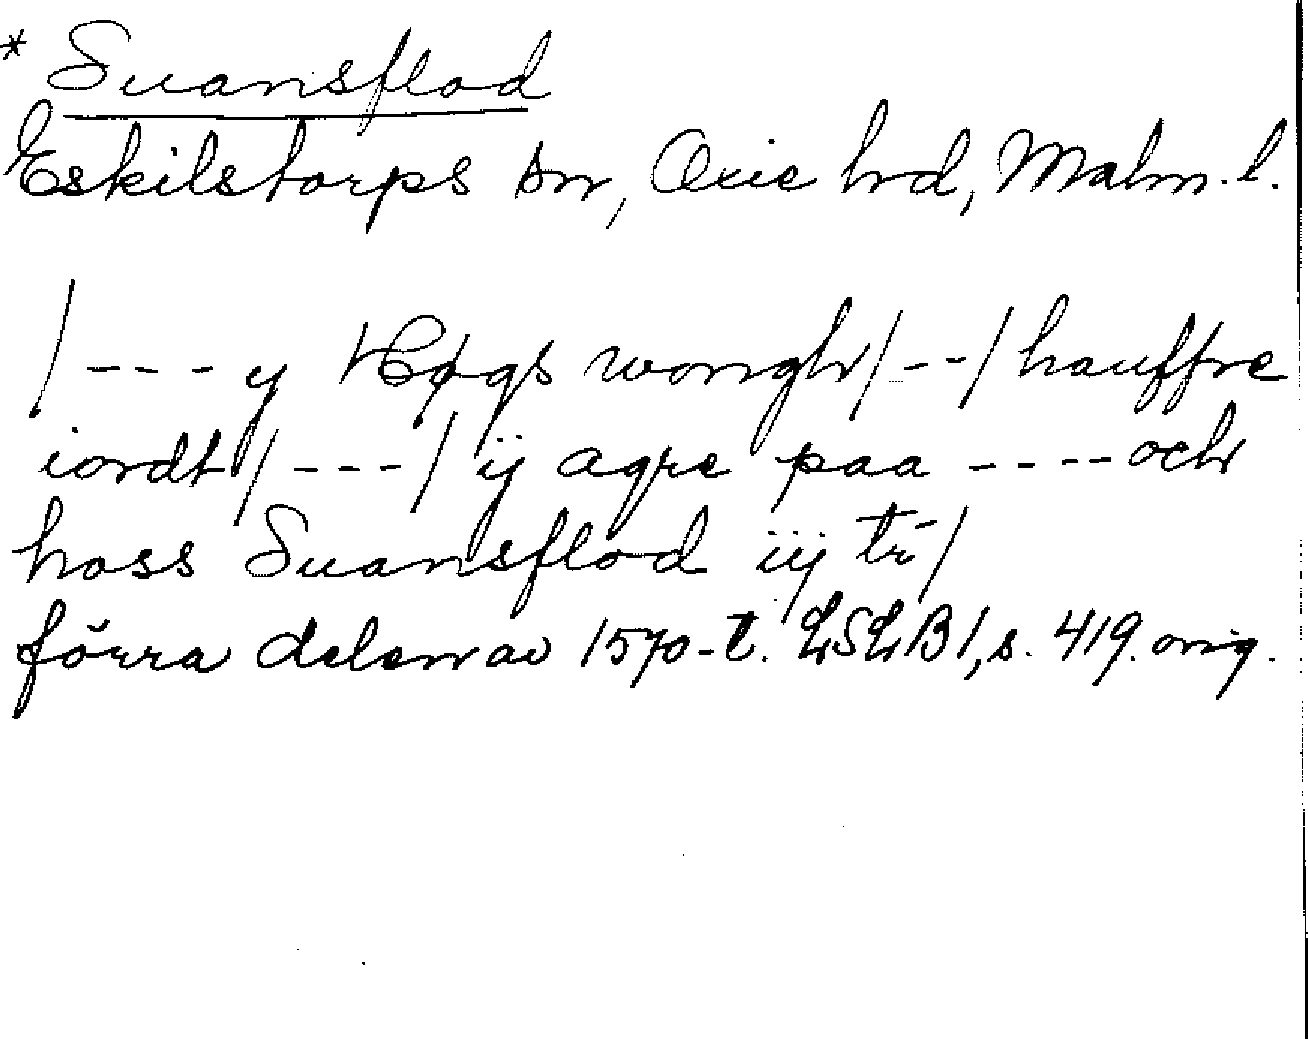 * Suansflod
Eskilstorps sn, Oxie hd, Malm. l.
/--- y Høgs wongh/--/ hauffre
iordt/---/ ij agre paa ---- och
hoss Suansflod iij tr/
förra delen av 1570-t. LSLB1, s. 419. orig.